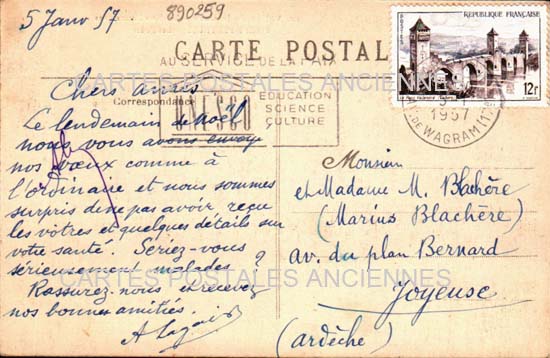 5 Janv 57
890259
RÉPUBLIQUE FRANÇAISE
POSTES
12f
CARTE POSTALE
AU SERVICE DE LA PAIX
CARTES POSTALES ANCIENNES
UNESCO
EDUCATION
SCIENCE
CULTURE
1957
. DE WAGRAM (17
Correspondance
Chers amis
Le lendemain de Noël,
nous vous avons envoyé
nos vœux comme à
l'ordinaire et nous sommes
surpris de ne pas avoir reçu
les vôtres et quelques détails sur
votre santé. Seriez-vous
sérieusement malades ?
Rassurez-nous et recevez
nos bonnes amitiés.
Monsieur
et Madame M. Blachère
(Marius Blachère)
av. du plan Bernard
CARTES POSTALES ANCIENNES
Joyeuse
(ardèche)